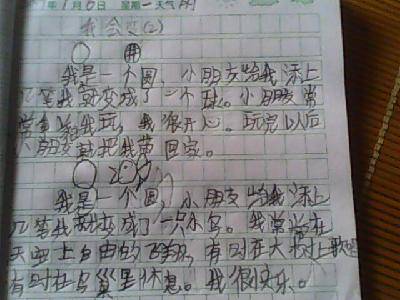 1月6日 星期一 天气 阴
我会变(2)
我是一个圆，小朋友给我添上
几笔我就变成了一个球。小朋友常
常和我玩，我很开心。玩完以后
小朋友就把我带回家。
我是一个圆，小朋友给我添上
几笔我就变成了一只小鸟。我常常在
天空上自由的飞翔，有时在大树上歌唱
有时在鸟巢里休息。我很快乐。